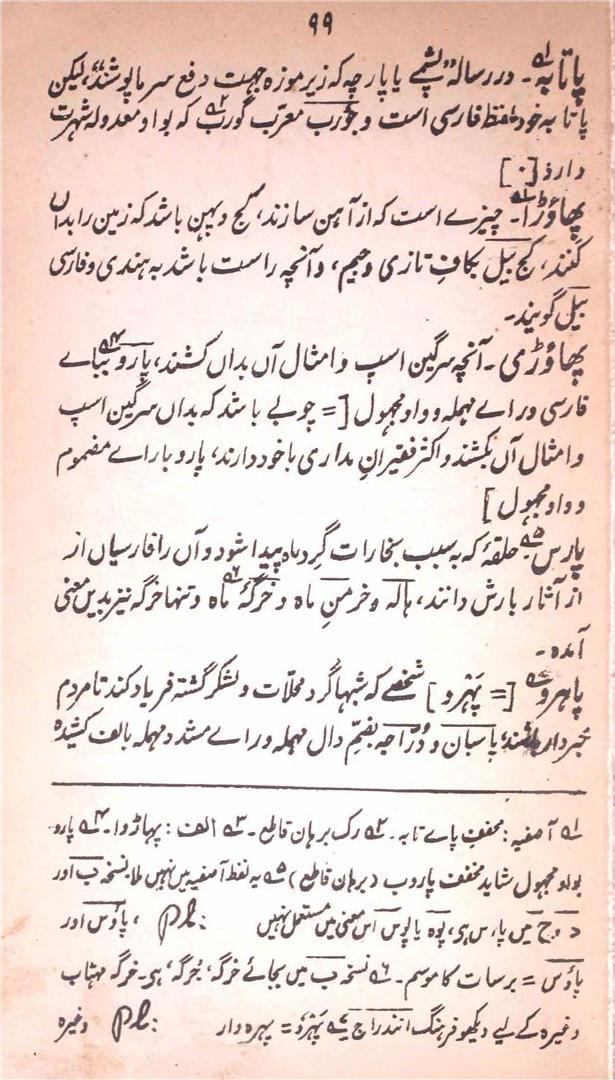 ۹۹
پاتابہ۱؎۔ در رسالہ "پشمے یا پارچہ کہ زیر موزہ جہت دفع سرما پوشند"، لیکن
پاتابہ خود لفظ فارسی است و جورب معرّب گورب۲؎ کہ بواو معدولہ شہرت
دارد [۰]
پھاؤڑا۳؎۔ چیزے است کہ از آہن سازند، کج و پہن باشد کہ زمین را بداں
کنند، کج بیل بکافِ تازی و جیم، و آنچہ راست باشد بہ ہندی و فارسی
بیل گویند۔
پھاؤڑی۔ آنچہ سرگین اسپ و امثال آں بداں کشند، پارو۴؎ بباے
فارسی و راے مہملہ و واو مجہول [= چوبے باشد کہ بداں سرگین اسپ
و امثال آں بکشند و اکثر فقیرانِ مداری با خود دارند، پارو با راے مضموم
و واو مجہول]
پارس۵؎۔ حلقۂ کہ بہ سبب بخارات گردِ ماہ پیدا شود و آں را فارسیاں از
از آثار بارش دانند، ہالہ و خرمنِ ماہ و خرگۂ۶؎ ماہ و تنہا خرگہ نیز بدیں معنی
آمدہ۔
پاہرو۷؎ [= پَہْرو] شخصے کہ شبہا گرد محلّات و لشکر گشتہ فریاد کند تا مردم
خبردار باشند، پاسبان و دُرّاجہ بضمِّ دال مہملہ و راے مشدد مہملہ بالف کشیدہ
۱؎ آصفیہ: مخفف پاے تابہ۔ ۲؎ رک برہان قاطع۔ ۳؎ الف: پہاڑوا۔ ۴؎ پارو
بواو مجہول شاید مخفف پاروب (برہان قاطع) ۵؎ یہ لفظ آصفیہ میں نہیں ملا نسخہ ب اور
د و ج میں پارس ہی، پوہ یا پوس اس معنی میں مستعمل نہیں Pl: ، پاؤس اور
پاؤس = برسات کا موسم۔ ۶؎ نسخہ ب میں بجائے خرگہ 'جرگہ' ہی۔ خرگہ مہتاب
وغیرہ کے لیے دیکھو فرہنگ انندراج ۷؎ پَہْرو = پہرہ دار Pl: وغیرہ